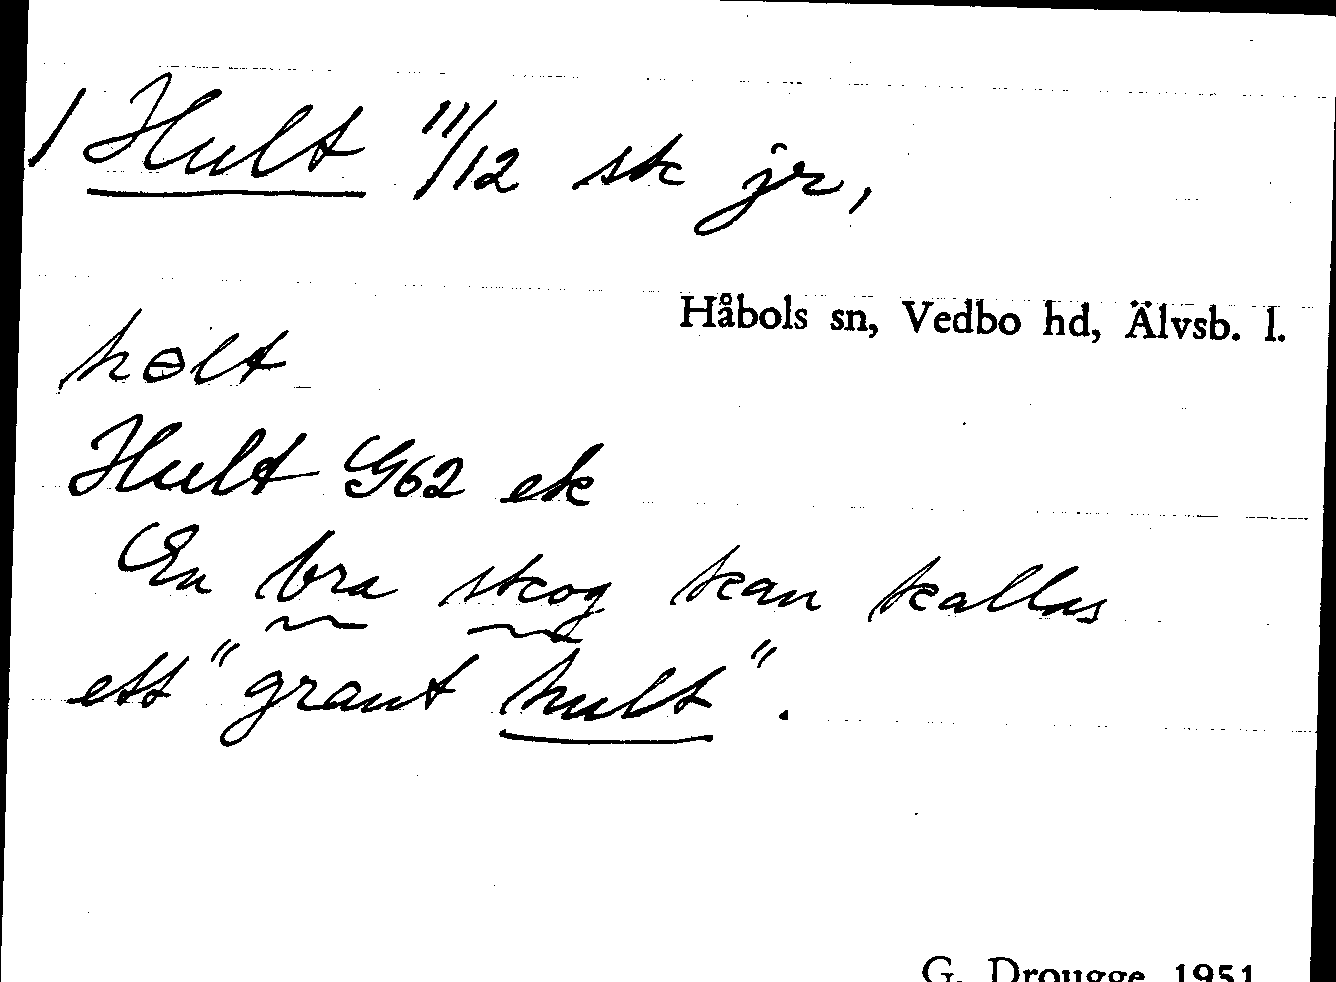 / Hult 11/12 sk jr,
Håbols sn, Vedbo hd, Älvsb. l.
hɵlt
Hult G62 ek
En bra skog kan kallas
ett "grant hult".
G. Drougge 1951